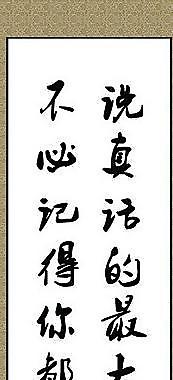 说真话的最大
不必记得你都